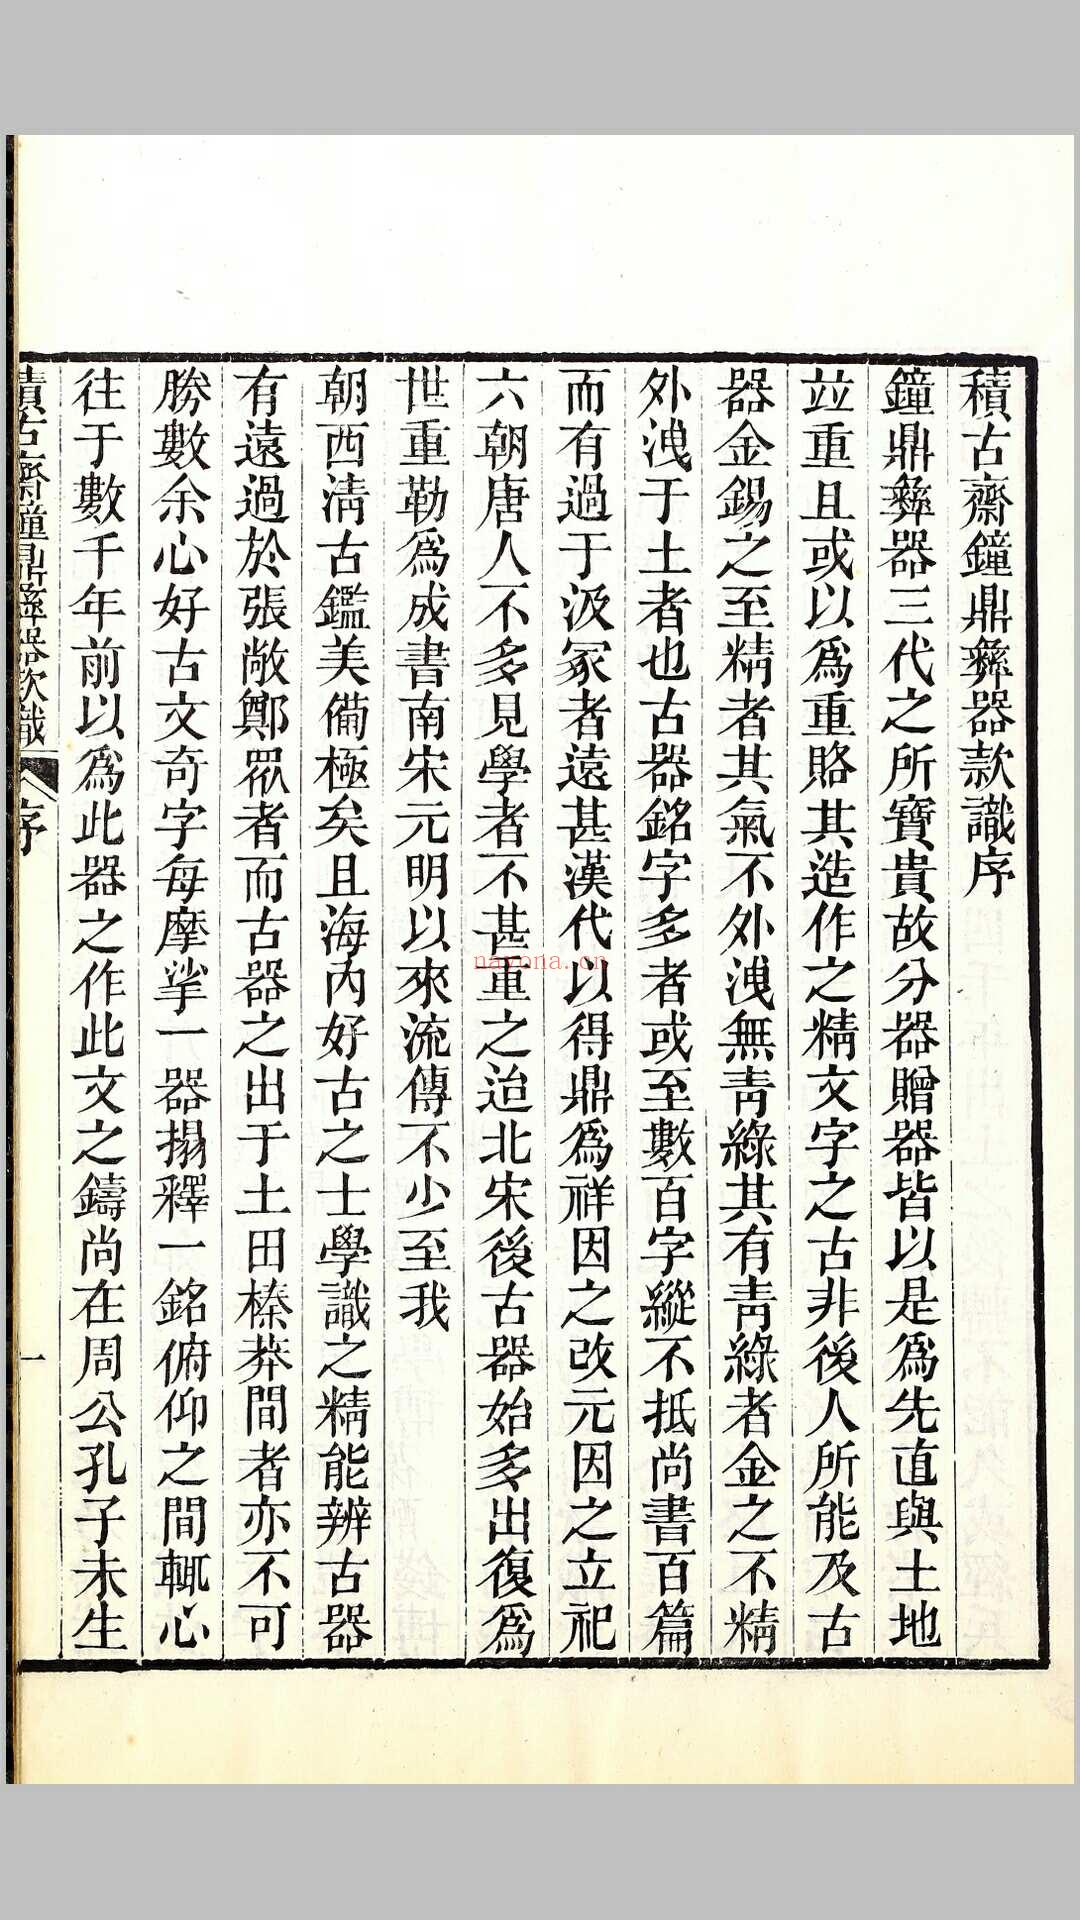 積古齋鐘鼎彝器款識序
鐘鼎彝器三代之所寶貴故分器贈器皆以是爲先直與土地
竝重且或以爲重賂其造作之精文字之古非後人所能及古
器金錫之至精者其氣不外洩無青綠其有青綠者金之不精
外洩于土者也古器銘字多者或至數百字縱不抵尚書百篇
而有過于汲冢者遠甚漢代以得鼎爲祥因之改元因之立祀
六朝唐人不多見學者不甚重之迨北宋後古器始多出復爲
世重勒爲成書南宋元明以來流傳不少至我
朝西淸古鑑美備極矣且海內好古之士學識之精能辨古器
有遠過於張敞鄭眾者而古器之出于土田榛莽間者亦不可
勝數余心好古文奇字每摩挲一器搨釋一銘俯仰之間輒心
往于數千年前以爲此器之作此文之鑄尚在周公孔子未生
積古齋鐘鼎彝器款識 序 一
nayona.cn